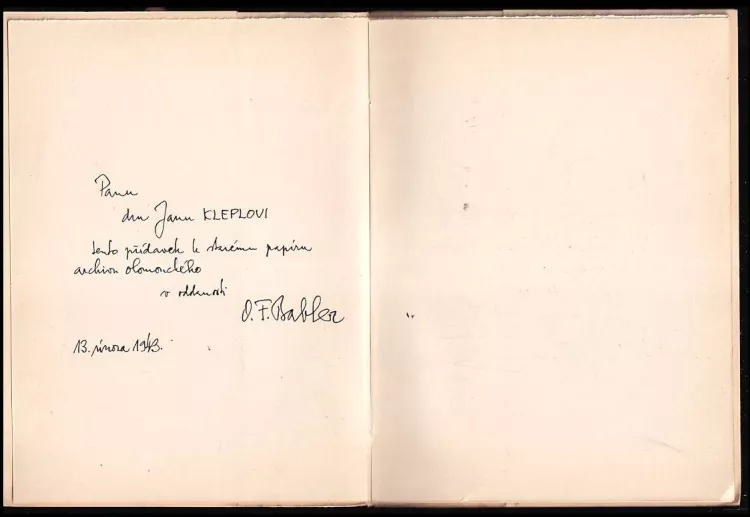 Panu
dru Janu KLEPLOVI
tento přídavek k starému papíru
archivu olomouckého
v oddanosti
O. F. Babler
13. února 1943.